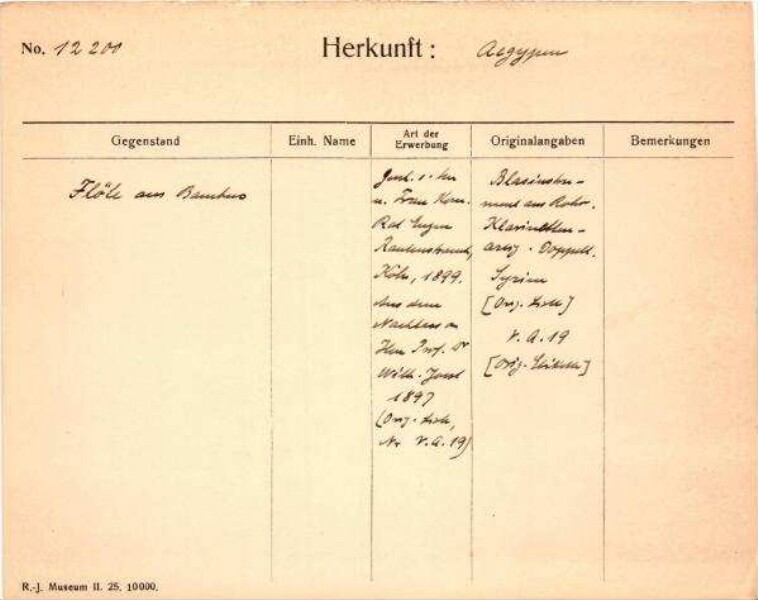 No. 12200
Herkunft: Aegypten
Gegenstand
Einh. Name
Art der
Erwerbung
Originalangaben
Bemerkungen
Flöte aus Bambus
Gesch. v. Hrn
u. Frau Kom.
Rat Eugen
Rautenstrauch,
Köln, 1899.
Aus dem
Nachlass v
Hrn Prof. Dr
Wilh. Joest
1897
(Orig.
Nr V.A.19)
Blasinstru-
ment aus Rohr.
Klarinetten-
artig. Doppelt.
Syrien
[Orig.
V.A.19
[Orig.
R.-J. Museum II. 25. 10000.